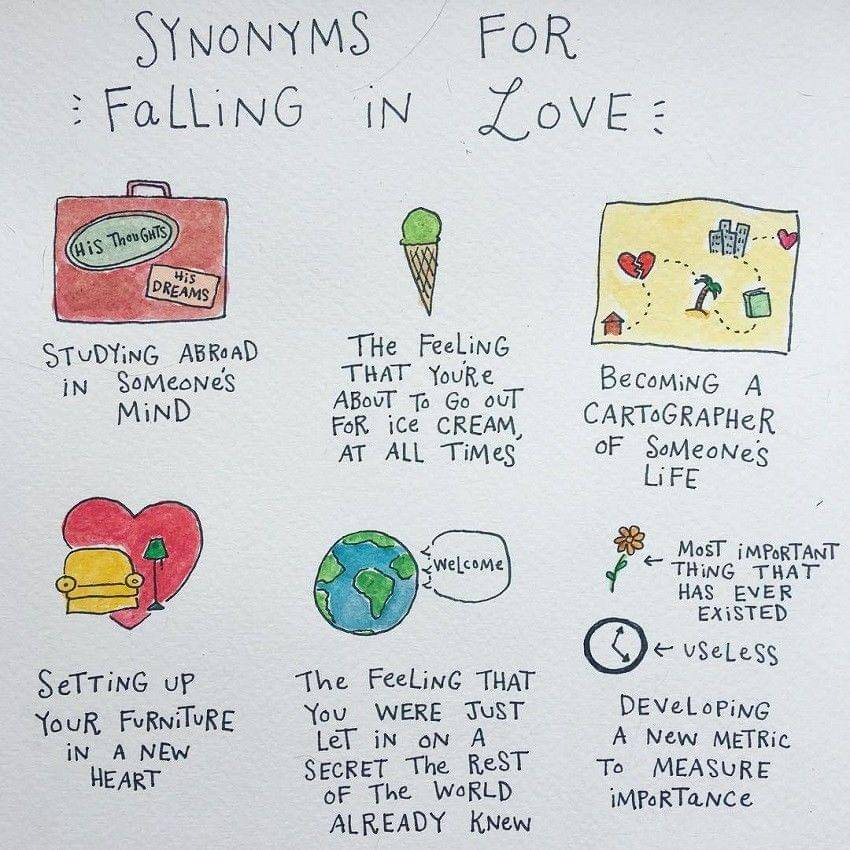 SYNONYMS FOR
FaLLiNG iN LOVE
HiS ThouGHTS
HiS
DREAMS
STUDYiNG ABRoAD
iN SoMeoNe's
MiND
THe FeeLiNG
THAT You'Re
ABouT To Go ouT
FoR ice CREAM,
AT ALL TiMeS
BeCoMiNG A
CARToGRAPHeR
oF SoMeoNe's
LiFE
SeTTiNG uP
YouR FuRNiTuRE
iN A NEW
HEART
Welcome
The FeeLiNG THAT
You WERE JuST
LeT iN oN A
SECRET The ReST
oF The WoRLD
ALREADY KNeW
MoST iMPoRTANT
THiNG THAT
HAS EVER
EXiSTED
uSeLeSS
DEVeLoPiNG
A NeW METRic
To MEASURE
iMPoRTaNCe